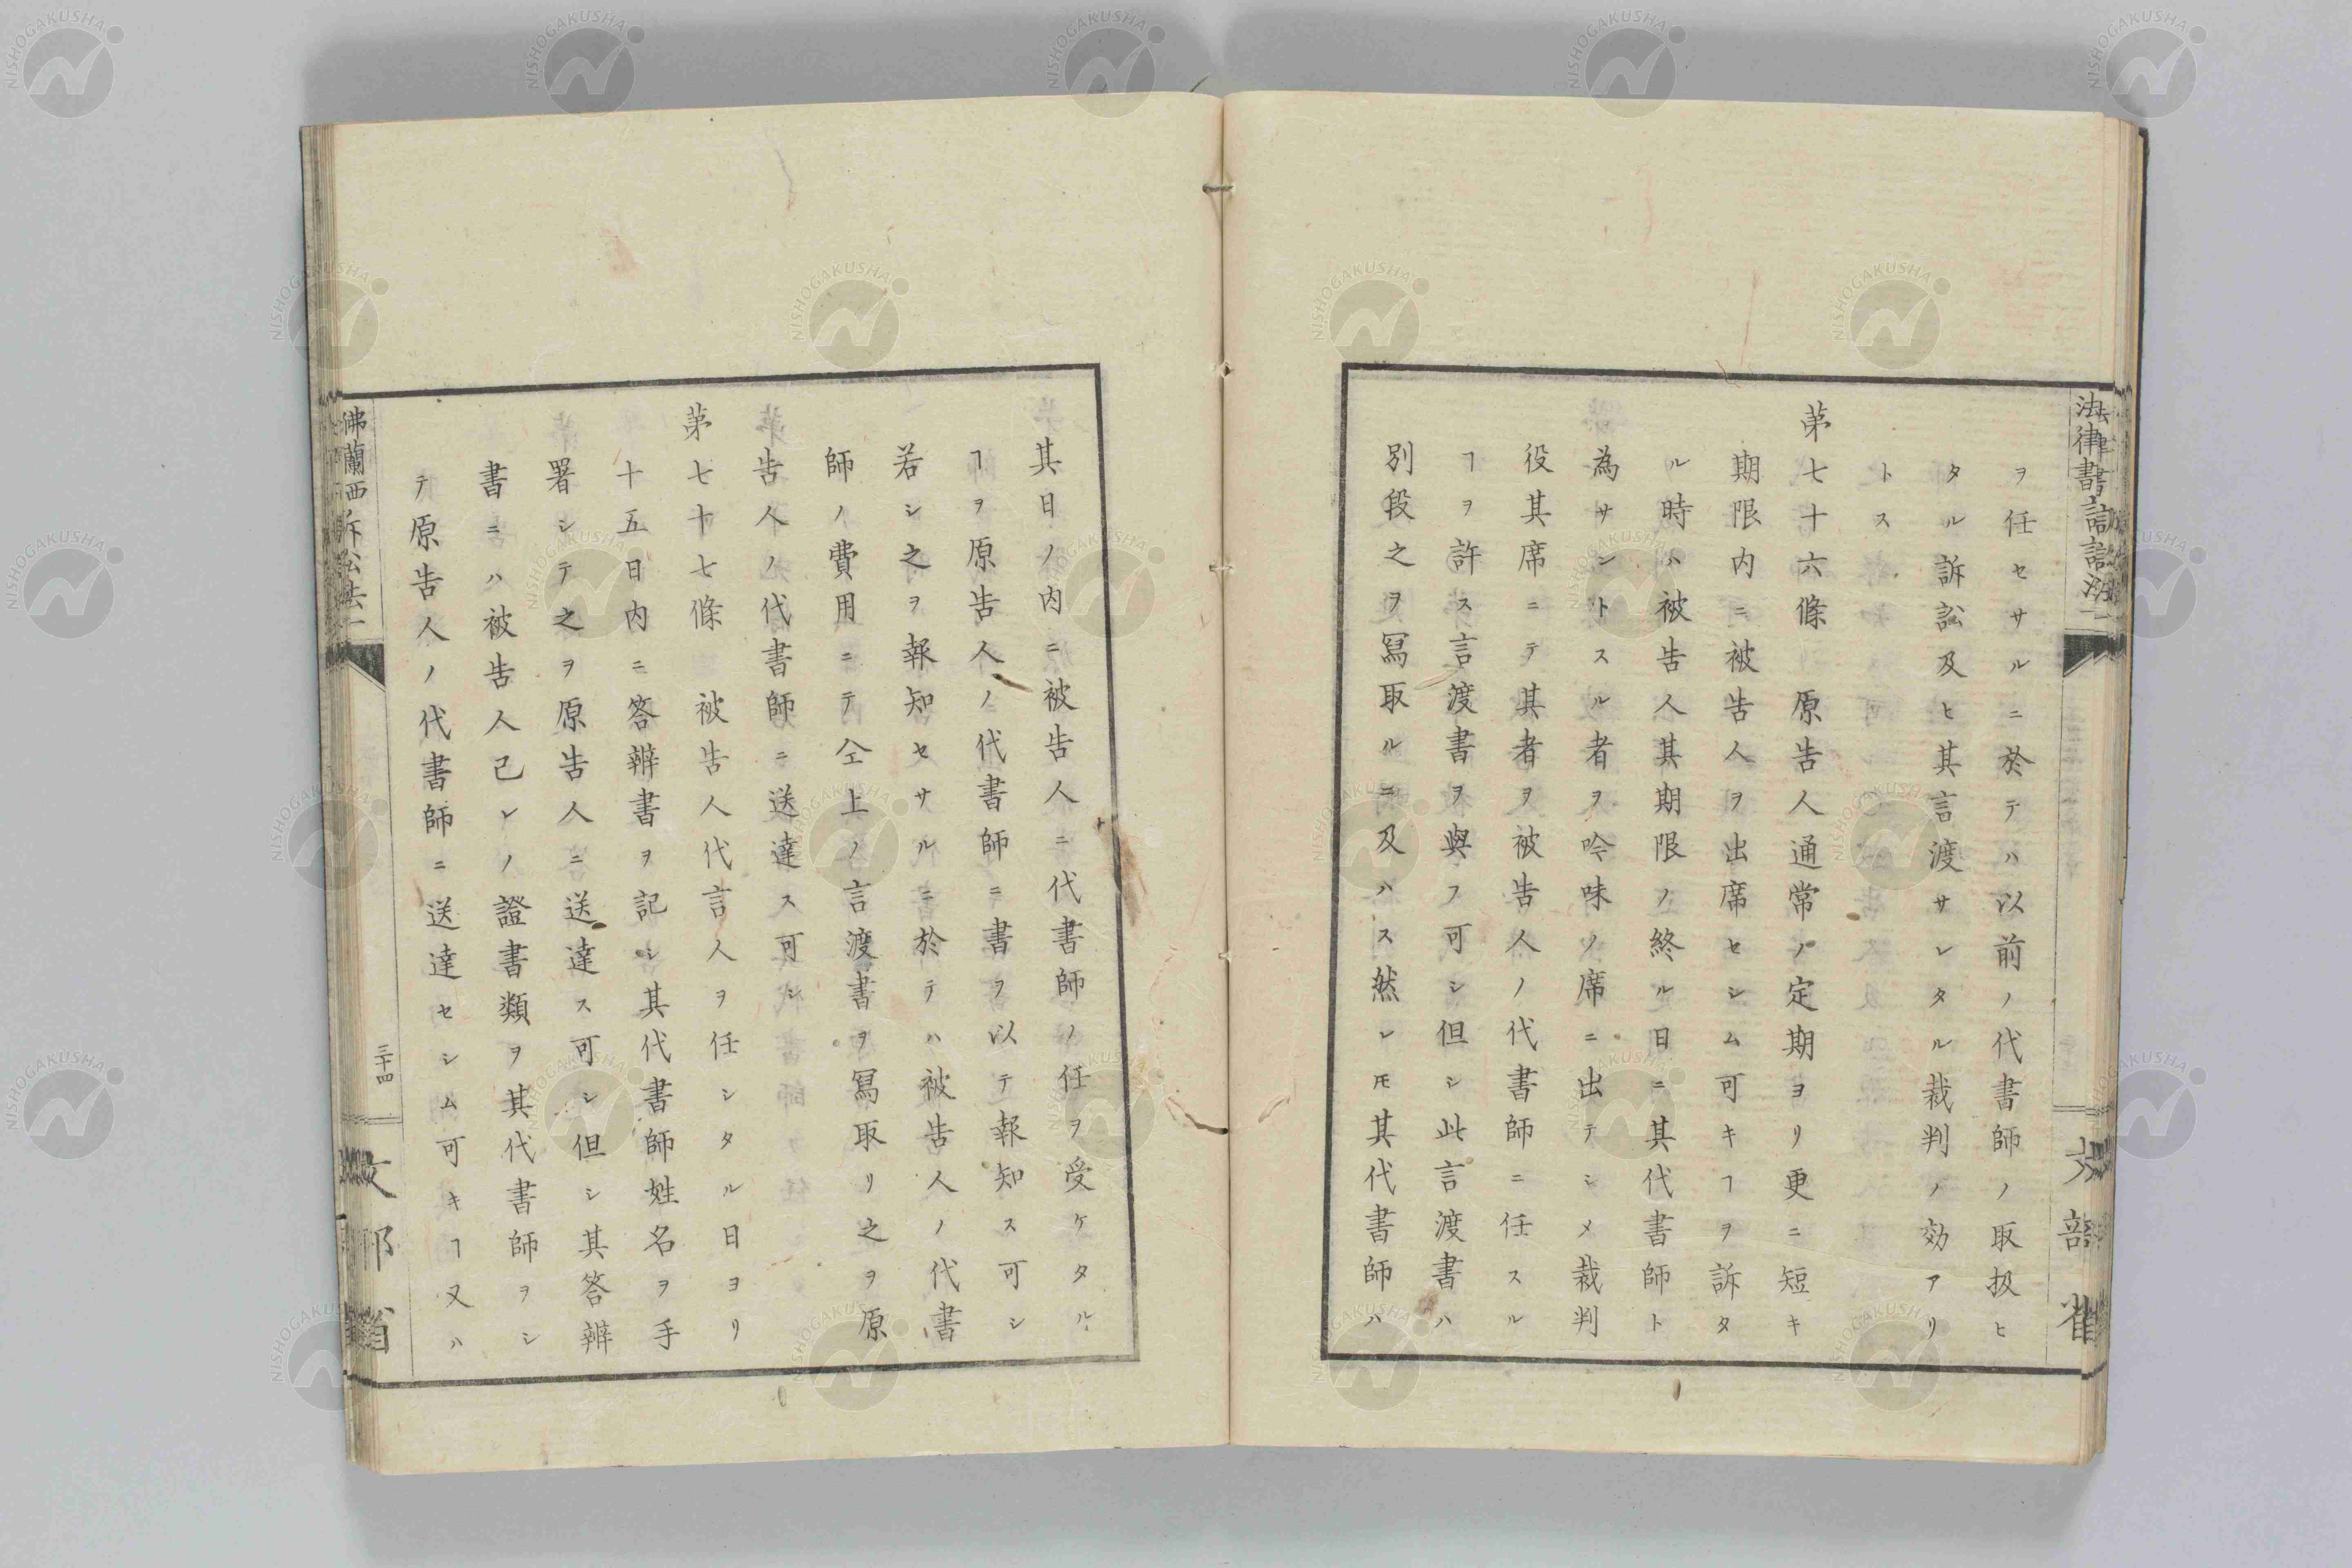 ヲ任セサルニ於テハ以前ノ代書師ノ取扱ヒ
タル訴訟及ヒ其言渡サレタル裁判ノ効アリ
トス
第七十六條 原告人通常ノ定期ヨリ更ニ短キ
期限内ニ被告人ヲ出席セシム可キヿヲ訴タ
ル時ハ被告人其期限ノ終ル日ニ其代書師ト
為サントスル者ヲ吟味ノ席ニ出テシメ裁判
役其席ニテ其者ヲ被告人ノ代書師ニ任スル
ヿヲ許ス言渡書ヲ與フ可シ但シ此言渡書ハ
別段之ヲ冩取ルニ及ハス然レ𪜈其代書師ハ
其日ノ内ニ被告人ニ代書師ノ任ヲ受ケタル
ヿヲ原告人ノ代書師ニ書ヲ以テ報知ス可シ
若シ之ヲ報知セサルニ於テハ被告人ノ代書
師ノ費用ニテ仝上ノ言渡書ヲ冩取リ之ヲ原
告人ノ代書師ニ送達ス可シ
第七十七條 被告人代言人ヲ任シタル日ヨリ
十五日内ニ答辨書ヲ記シ其代書師姓名ヲ手
署シテ之ヲ原告人ニ送達ス可シ但シ其答辨
書ニハ被告人己レノ證書類ヲ其代書師ヲシ
テ原告人ノ代書師ニ送達セシム可キヿ又ハ
佛蘭西訴訟法一
三十四
文部省
NISHOGAKUSHA